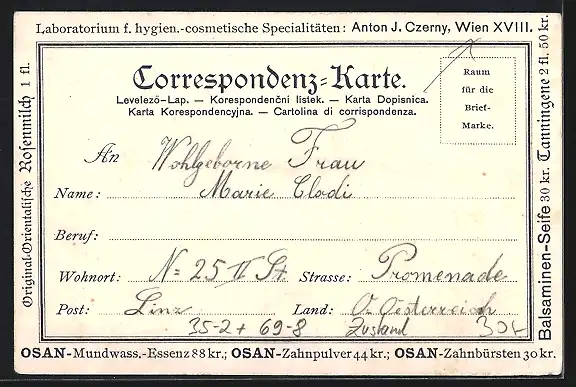 Laboratorium f. hygien.-cosmetische Specialitäten: Anton J. Czerny, Wien XVIII.
Original-Orientalische Rosenmilch 1 fl.
Correspondenz-Karte.
Levelező-Lap. — Korespondenční listek. — Karta Dopisnica.
Karta Korespondencyjna. — Cartolina di corrispondenza.
Raum
für die
Brief-
Marke.
An Wohlgeborne Frau
Name: Marie Clodi
Beruf:
Wohnort: N= 25 II St Strasse: Promenade
Post: Linz Land: O. Oesterreich
35-2+ 69-8 Zustand
Balsaminen-Seife 30 kr. Tanningene 2 fl. 50 kr.
OSAN-Mundwass.-Essenz 88 kr.; OSAN-Zahnpulver 44 kr.; OSAN-Zahnbürsten 30 kr.